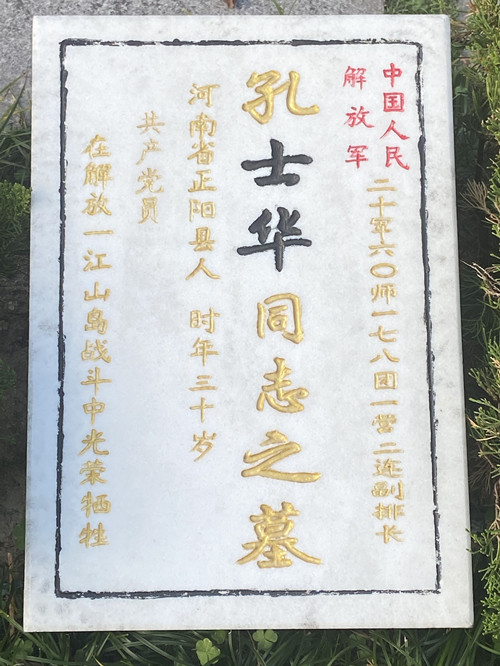 中国人民
解放军
二十军六〇师一七八团一营二连副排长
孔士华同志之墓
河南省正阳县人 时年三十岁
共产党员
在解放一江山岛战斗中光荣牺牲